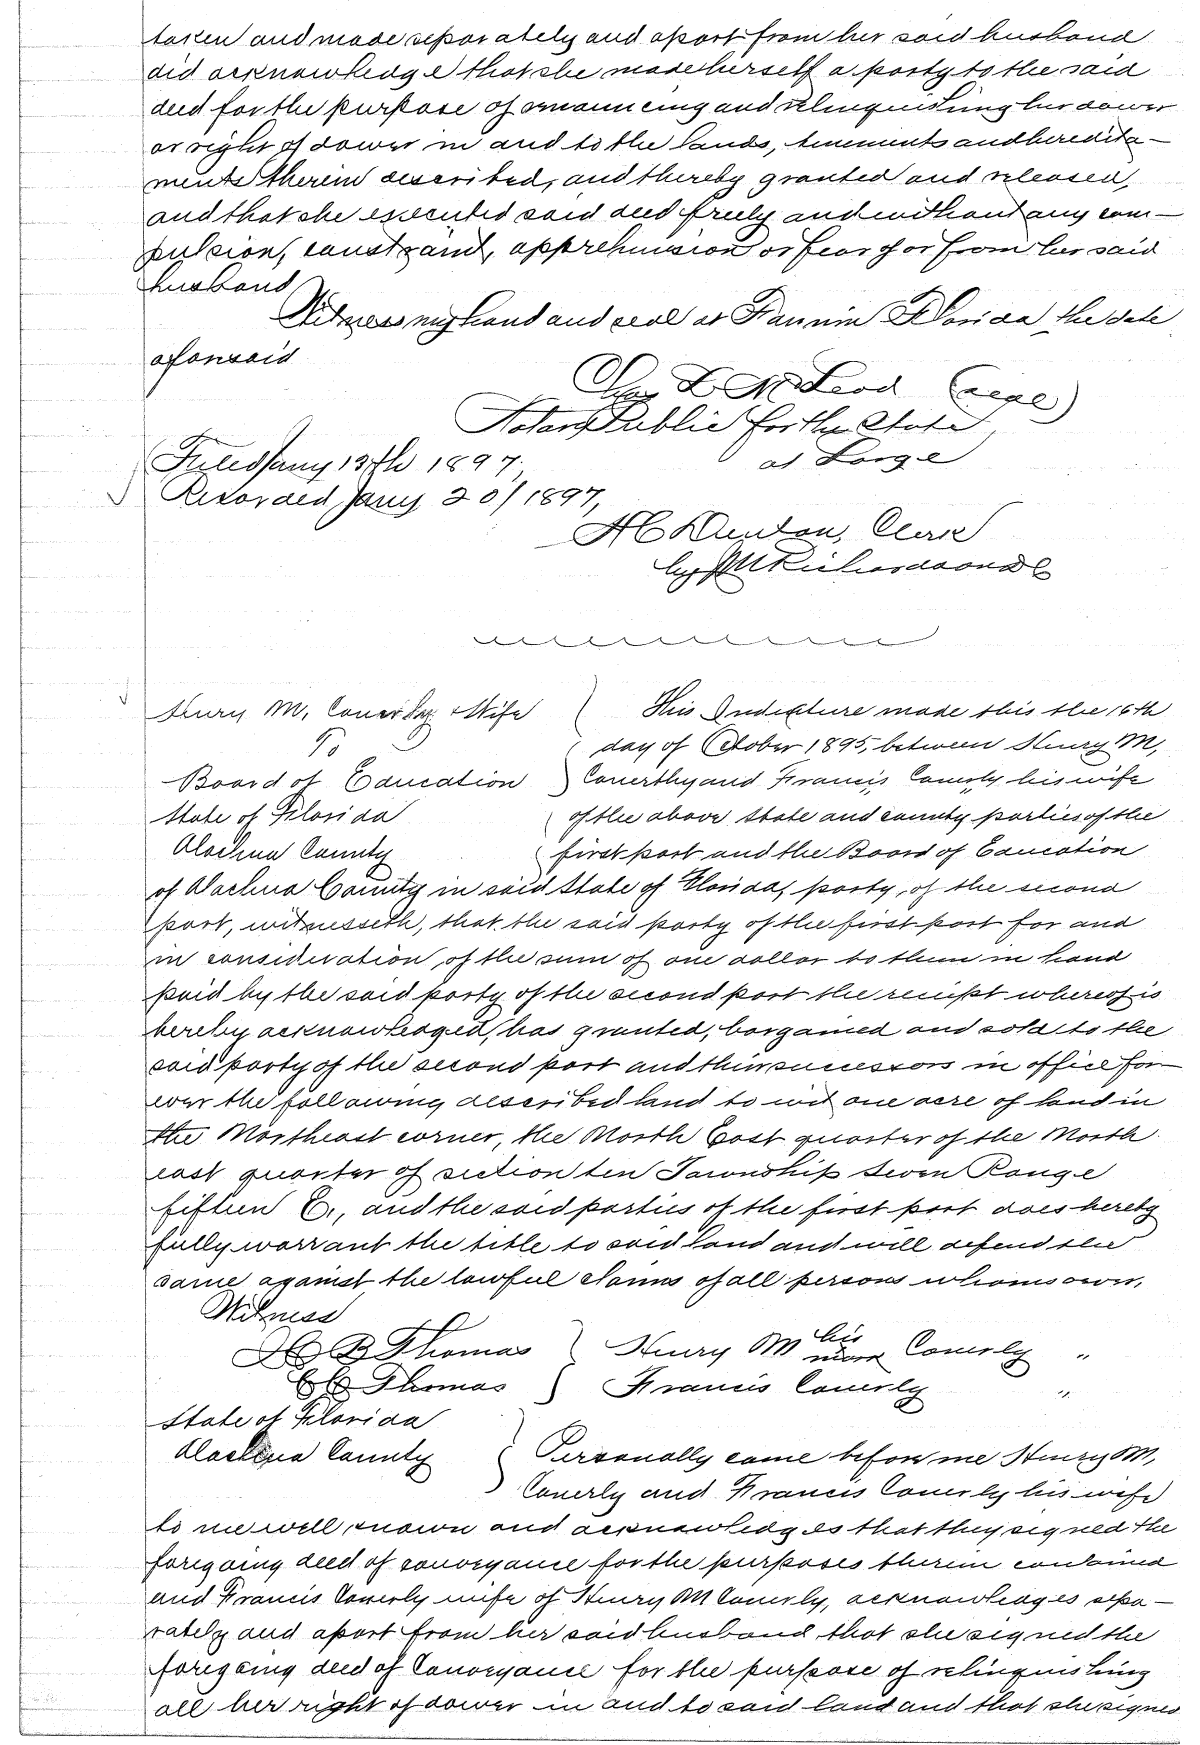 taken and made separately and apart from her said husband
did acknowledge that she made herself a party to the said
deed for the purpose of renouncing and relinquishing her dower
or right of dower in and to the lands, tenements and heredita-
ments therein described, and thereby granted and released,
and that she executed said deed freely and without any com-
pulsion, constraint, apprehension or fear of or from her said
husband
Witness my hand and seal at Fannin Florida the date
aforesaid
Chas L McLeod (seal)
Notary Public for the State
at Large
Filed Jany 13th 1897,
Recorded Jany 20/1897,
H C Denton, Clerk
by Richardson D C
Henry M, Conerly & Wife
To
Board of Education
State of Florida
Alachua County
This Indenture made this the 16th
day of October 1895, between Henry M,
Conerthy and Francis Conerly his wife
of the above State and county parties of the
first part and the Board of Education
of Alachua County in said State of Florida, party, of the second
part, witnesseth, that the said party of the first part for and
in consideration of the sum of one dollar to them in hand
paid by the said party of the second part the receipt whereof is
hereby acknowledged, has granted, bargained and sold to the
said party of the second part and their successors in office for-
ever the following described land to wit one acre of land in
the Northeast corner, the North East quarter of the North
east quarter of section ten Township seven Range
fifteen E., and the said parties of the first part does hereby
fully warrant the title to said land and will defend the
same against the lawful claims of all persons whomsoever,
Witness
B Thomas Henry M his mark Conerly "
Thomas Francis Conerly "
State of Florida
Alachua County
Personally came before me Henry M,
Conerly and Francis Conerly his wife
to me well known and acknowledges that they signed the
foregoing deed of conveyance for the purposes therein contained
and Francis Conerly wife of Henry M Conerly, acknowledges sepa-
rately and apart from her said husband that she signed the
foregoing deed of Conveyance for the purpose of relinquishing
all her right of dower in and to said land and that she signed